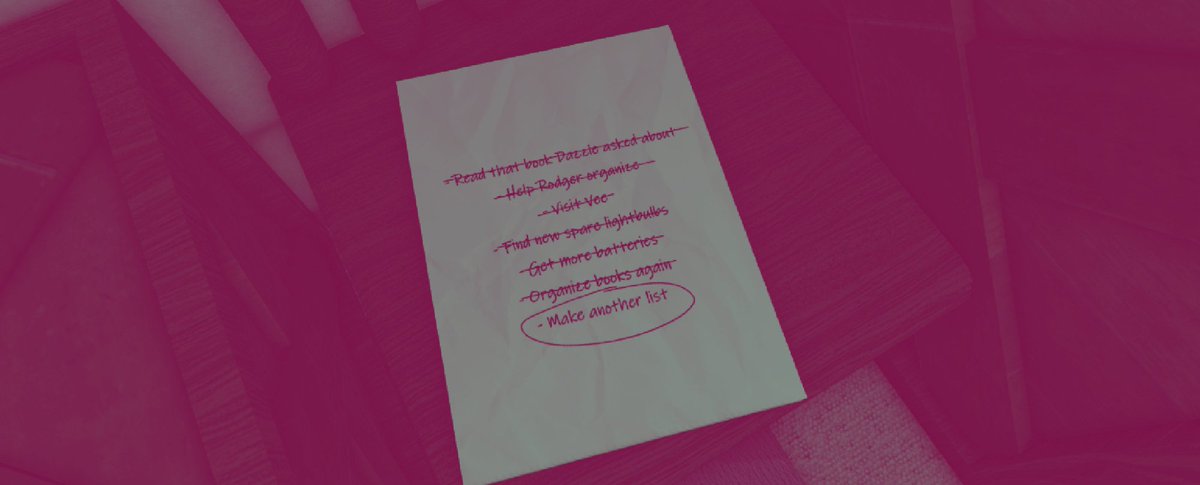 - Read that book Dazzle asked about
- Help Rodger organize
- Visit Vee
- Find new spare lightbulbs
- Get more batteries
- Organize books again
- Make another list